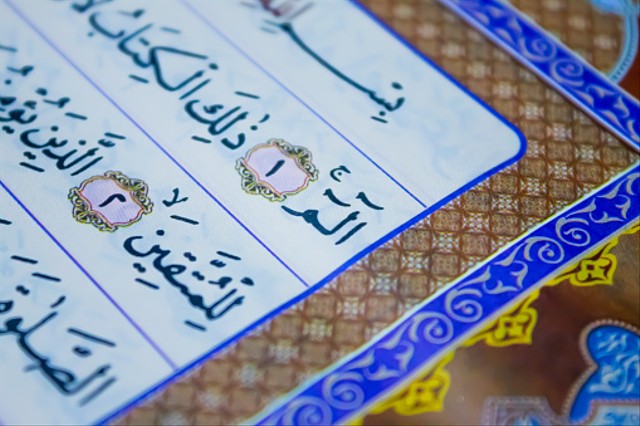 بِسْمِ اللّٰهِ
الٓمٓۚ ۝١ ذٰلِكَ الْكِتَابُ لَا
لِلْمُتَّقِينَۙ ۝٢ الَّذِينَ يُؤْمِنُ
الصَّلٰوةَ